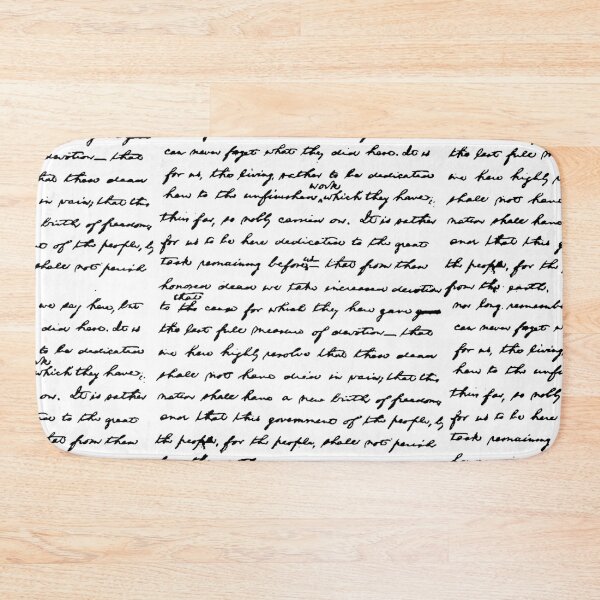 devotion— that
that these dead
in vain; that this
birth of freedom;
of the people, by
shall not perish
we say here, but
did here. It is
to be dedicated
which they have,
on. It is rather
to the great
that from these
can never forget what they did here. It is
for us, the living, rather to be dedicated
work
here to the unfinished which they have,
thus far, so nobly carried on. It is rather
for us to be here dedicated to the great
us
task remaining before — that from these
honored dead we take increased devotion
that
to the cause for which they here gave
the last full measure of devotion— that
we here highly resolve that these dead
shall not have died in vain; that this
nation shall have a new birth of freedom;
and that this government of the people, by
the people, for the people, shall not perish
the last full
we here highly
shall not have
nation shall have
and that this
the people, for the
from the earth.
nor long remember
can never forget
for us, the living
here to the
thus far, so nobly
for us to be here
task remaining